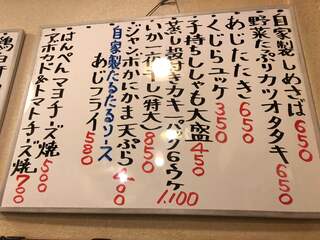 自家製しめさば 650
野菜たっぷりカツオタタキ 650
あじたたき 650
くじらユッケ 350
子持ちししゃも大盛 450
蒸し殻付きカキ
いか一夜干し(特大) 850
ジャンボかにかま天ぷら 400
自家製たるたるソース
あじフライ 580
はんぺんマヨチーズ焼 500
アボカド&トマトチーズ焼 700